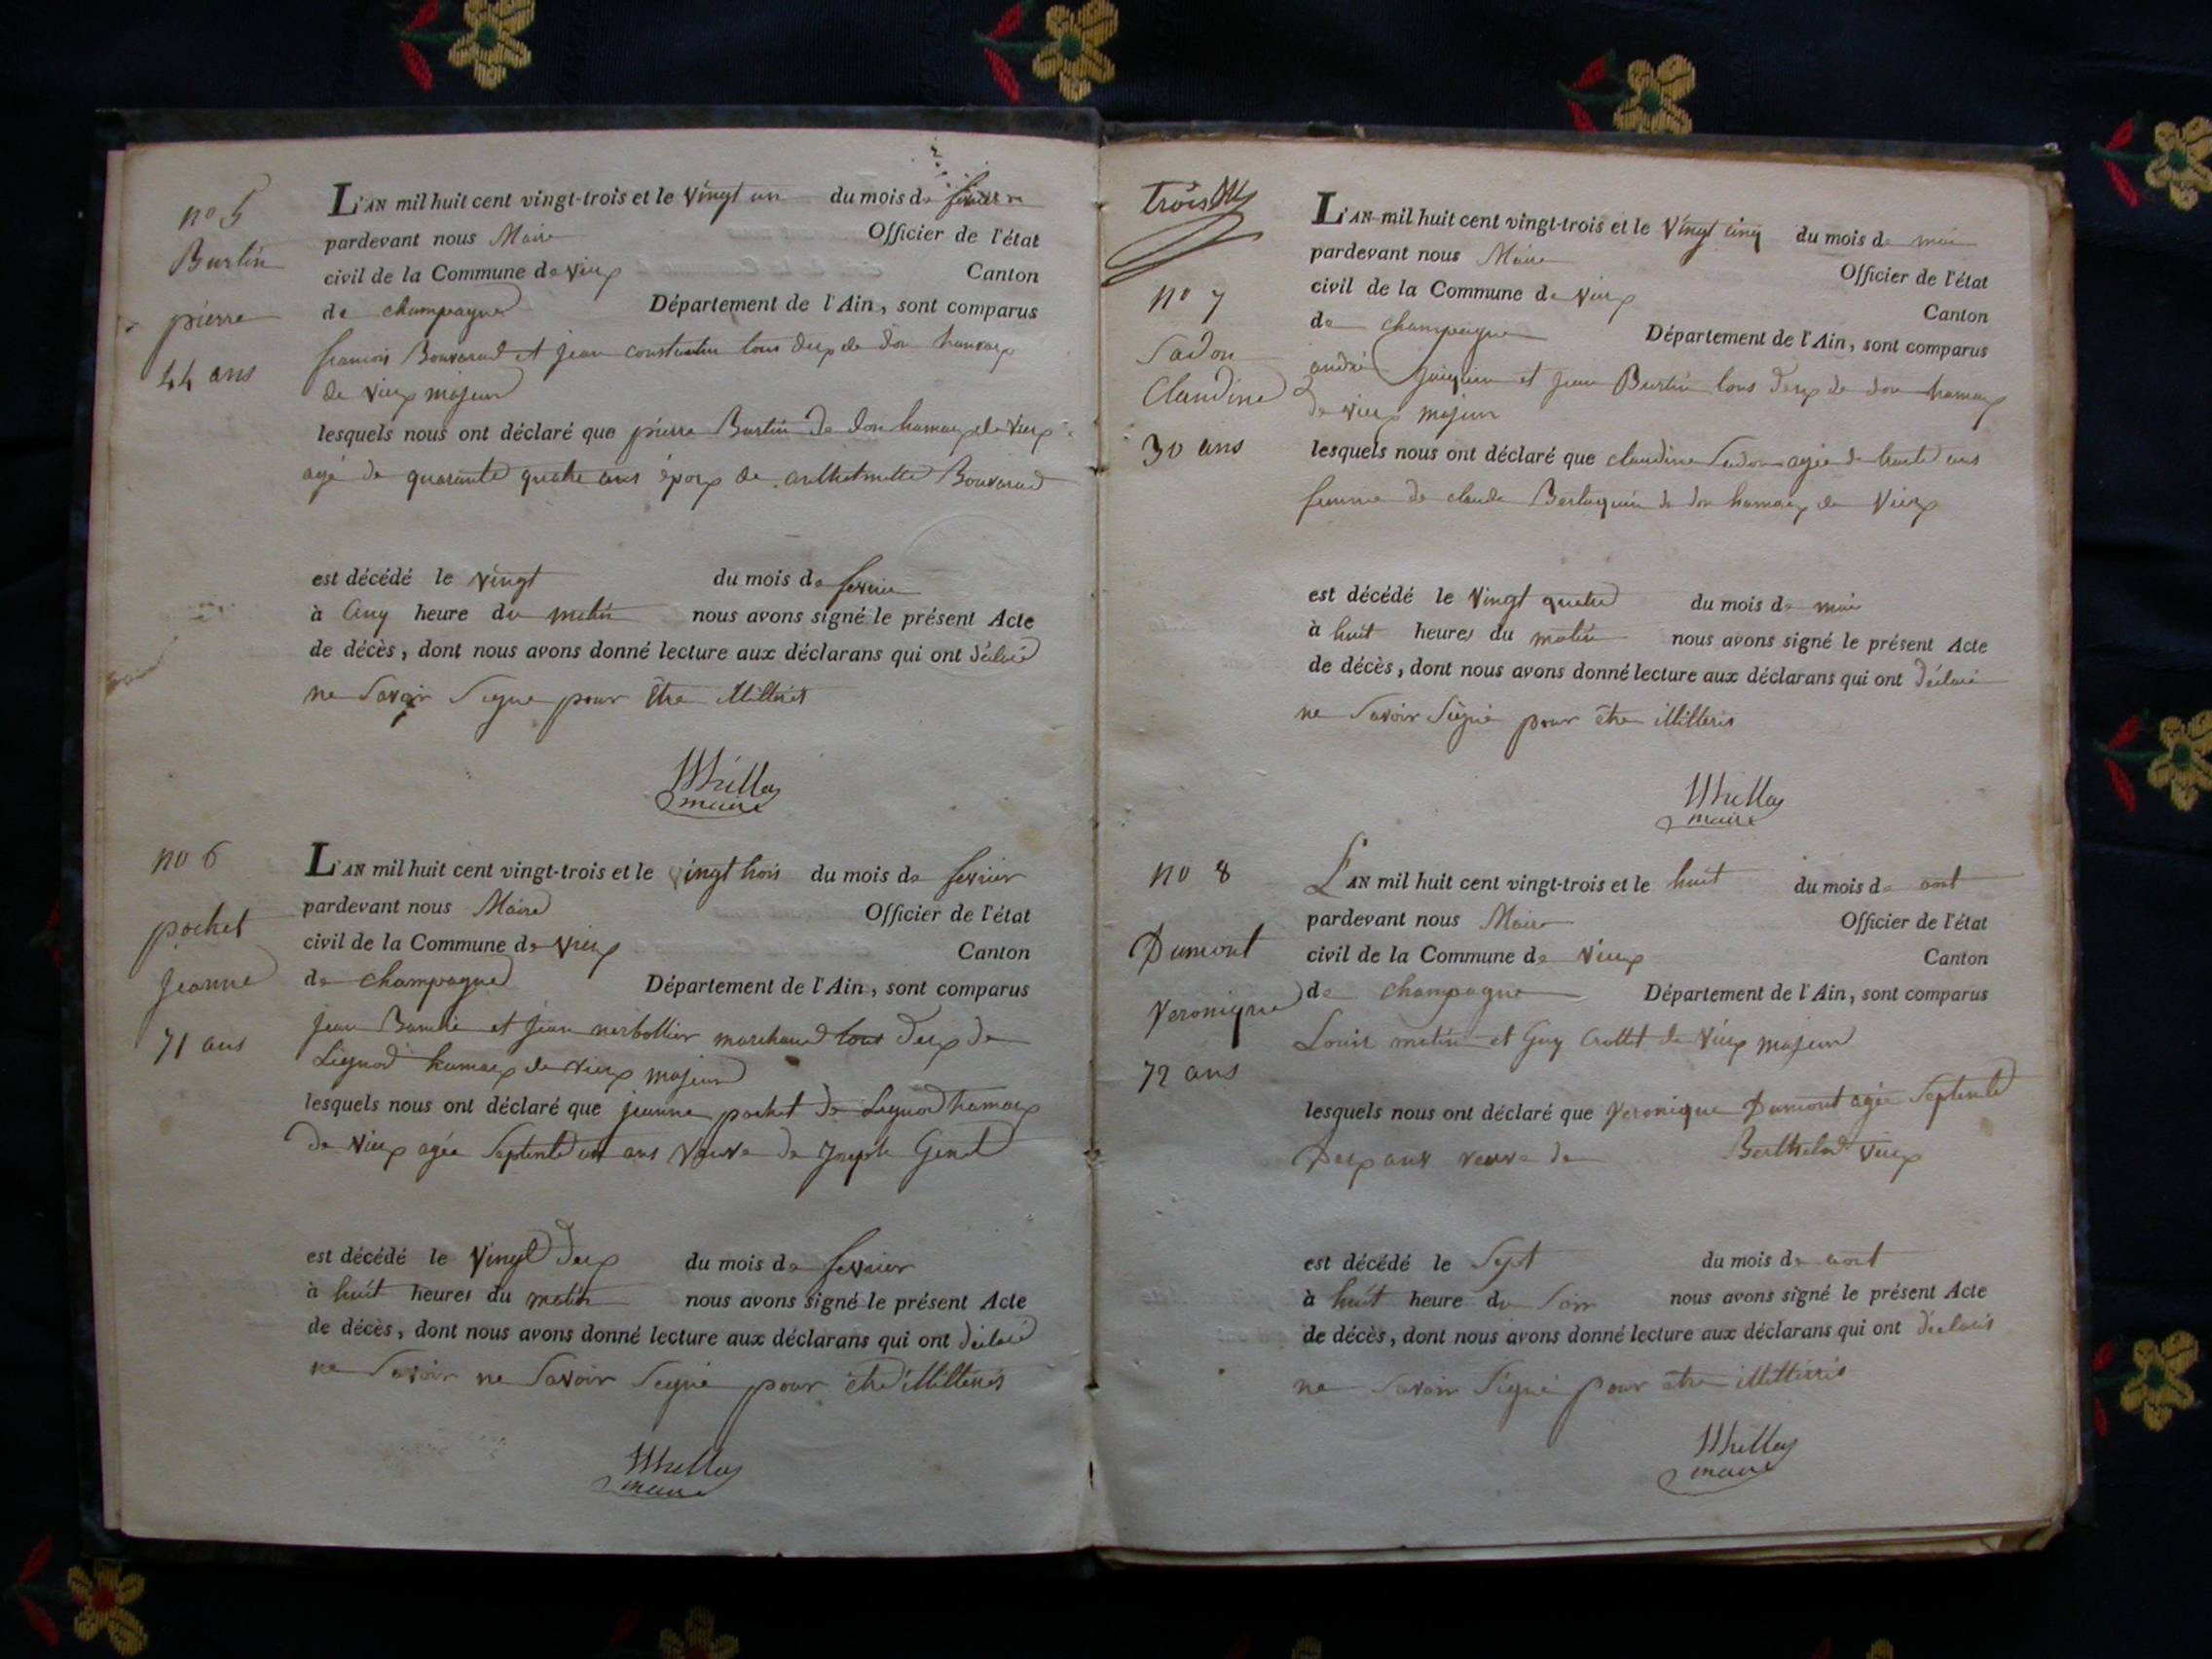 nº 5
Burtin
pierre
44 ans
L'AN mil huit cent vingt-trois et le vingt un du mois de fevrier
pardevant nous Maire Officier de l'état
civil de la Commune de vieux Canton
de champagne Département de l'Ain, sont comparus
francois Bouvarad et jean constantin tous deux de don hamaux
de vieux majeur
lesquels nous ont déclaré que pierre Burtin de don hamaux de vieux
agé de quarante quatre ans époux de Bouvarad
est décédé le vingt du mois de fevrier
à cinq heure du matin nous avons signé le présent Acte
de décès, dont nous avons donné lecture aux déclarans qui ont déclaré
ne savoir signe pour être illitéres
maire
nº 6
pochet
jeanne
71 ans
L'AN mil huit cent vingt-trois et le vingt trois du mois de fevrier
pardevant nous Maire Officier de l'état
civil de la Commune de vieux Canton
de champagne Département de l'Ain, sont comparus
jean et jean nerbollier marchand tout deux de
Lignod hamaux de vieux majeur
lesquels nous ont déclaré que jeanne pochet de Lignod hamaux
de vieux agée septente un ans veuve de joseph Genet
est décédé le vingt deux du mois de fevrier
à huit heures du matin nous avons signé le présent Acte
de décès, dont nous avons donné lecture aux déclarans qui ont déclaré
ne savoir ne savoir signé pour être illitterés
maire
trois
nº 7
Sadon
Claudine
30 ans
L'AN mil huit cent vingt-trois et le vingt cinq du mois de mai
pardevant nous Maire Officier de l'état
civil de la Commune de vieux Canton
de champagne Département de l'Ain, sont comparus
andré et jean Burtin tous deux de don hamaux
de vieux majeur
lesquels nous ont déclaré que claudine Sadon agée de trante ans
femme de claude Berlaquin de don hamaux de vieux
est décédé le vingt quatre du mois de mai
à huit heures du matin nous avons signé le présent Acte
de décès, dont nous avons donné lecture aux déclarans qui ont déclaré
ne savoir signé pour être illitteris
maire
nº 8
Dumont
veronique
72 ans
L'AN mil huit cent vingt-trois et le huit du mois de aout
pardevant nous Maire Officier de l'état
civil de la Commune de vieux Canton
de champagne Département de l'Ain, sont comparus
Louis metin et Guy Crottet de vieux majeur
lesquels nous ont déclaré que veronique Dumont agée septente
deux ans veuve de Berthelod vieux
est décédé le sept du mois de aout
à huit heure du soir nous avons signé le présent Acte
de décès, dont nous avons donné lecture aux déclarans qui ont déclarés
ne savoir signé pour être illittérés
maire